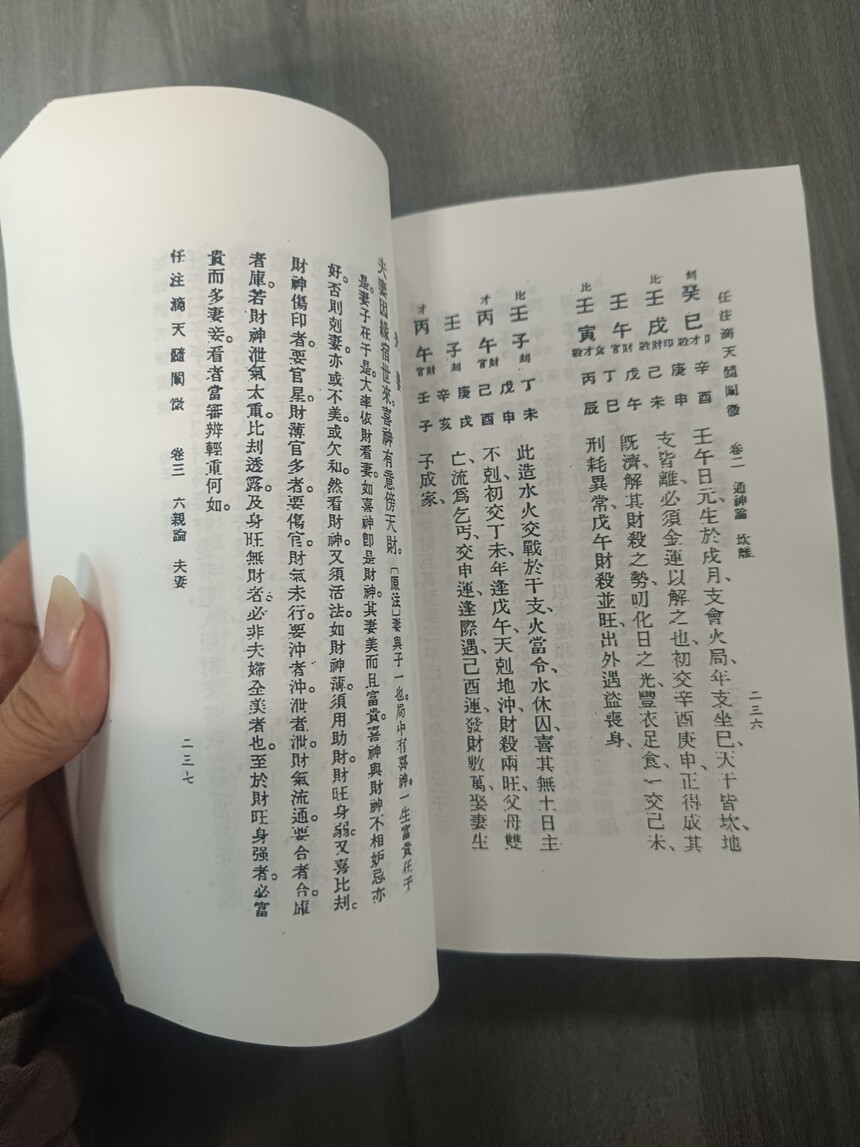 任注滴天髓闡微　卷二　通神論　坎離　二三六
劫 癸巳 卩才殺 辛酉
比 壬戌 殺財印 庚申
壬午 官財 己未
比 壬寅 殺才食 戊午
丁巳
丙辰
壬午日元、生於戌月、支會火局、年支坐巳、天干皆坎、地
支皆離、必須金運以解之也、初交辛酉庚申、正得成其
既濟、解其財殺之勢、叨化日之光、豐衣足食、一交己未、
刑耗異常、戊午財殺並旺、出外遇盜喪身、
比 壬子 刦 丁未
才 丙午 官財 戊申
壬子 刦 己酉
才 丙午 官財 庚戌
辛亥
壬子
此造水火交戰於干支、火當令、水休囚、喜其無土、日主
不剋、初交丁未、年逢戊午、天剋地沖、財殺兩旺、父母雙
亡、流爲乞丐、交申運、逢際遇、己酉運、發財數萬、娶妻生
子成家、
夫妻
夫妻因緣宿世來。喜神有意傍天財。〔原注〕妻與子一也。局中有喜神。一生富貴在于
是。妻子在于是。大率依財看妻。如喜神即是財神。其妻美而且富貴。喜神與財神不相妒忌亦
好。否則剋妻。亦或不美。或欠和。然看財神。又須活法。如財神薄。須用助財。財旺身弱。又喜比刦。
財神傷印者。要官星。財薄官多者。要傷官。財氣未行。要沖者沖。泄者泄。財氣流通。要合者合。庫
者庫。若財神泄氣太重。比刦透露。及身旺無財者。必非夫婦全美者也。至於財旺身强者。必富
貴而多妻妾。看者當審辨輕重何如。
任注滴天髓闡微　卷三　六親論　夫妻　二三七